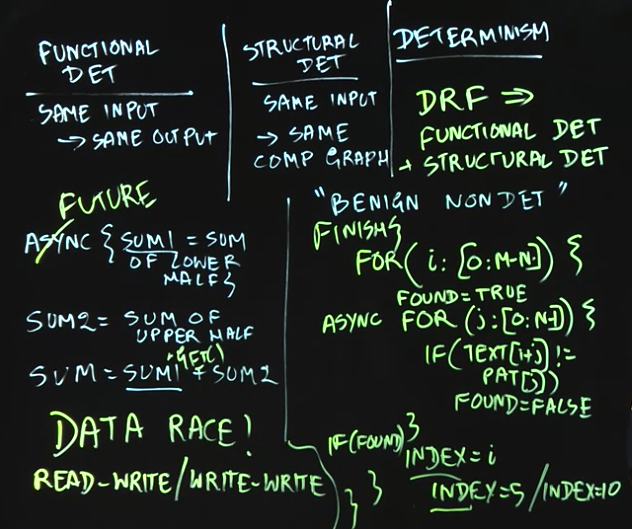 FUNCTIONAL
DET
SAME INPUT
→ SAME OUTPUT
STRUCTURAL
DET
SAME INPUT
→ SAME
COMP GRAPH
DETERMINISM
DRF ⇒
FUNCTIONAL DET
+ STRUCTURAL DET
FUTURE
ASYNC { SUM1 = SUM
OF LOWER
HALF }
SUM2 = SUM OF
UPPER HALF
SUM = SUM1 .GET() + SUM2
DATA RACE!
READ-WRITE/WRITE-WRITE
"BENIGN NONDET"
FINISH {
FOR (i: [0:M-N]) {
FOUND=TRUE
ASYNC FOR (j: [0:N-1]) {
IF(TEXT[i+j] !=
PAT[j])
FOUND=FALSE
}
IF(FOUND)
INDEX=i
} }
INDEX=5 / INDEX=10